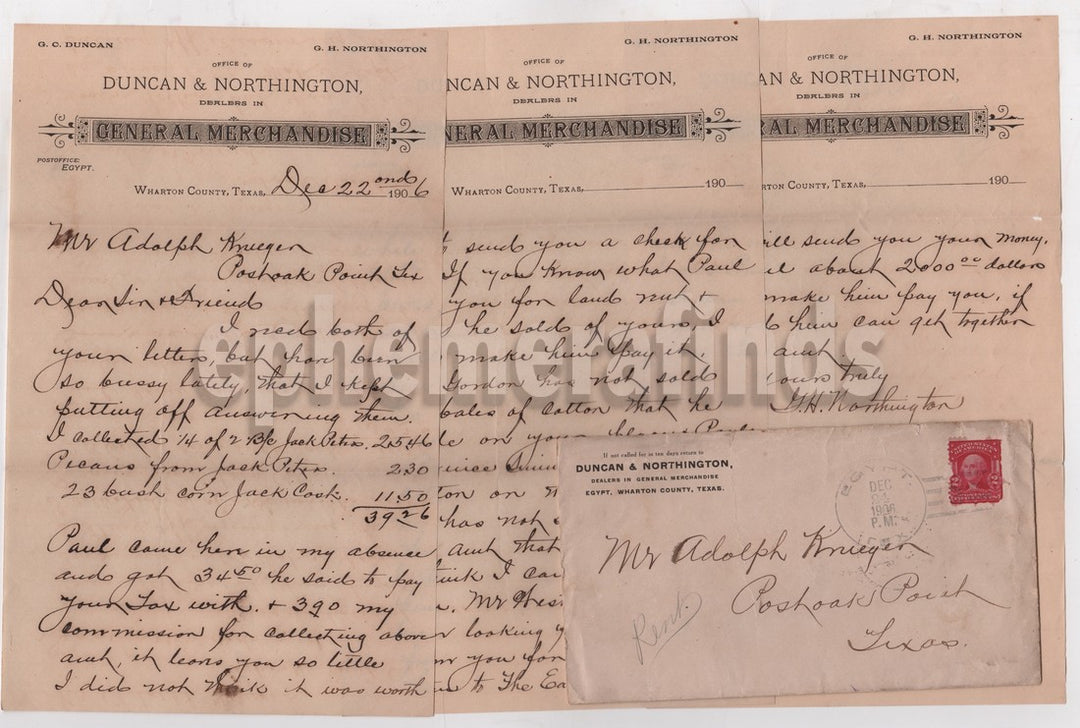 G. C. DUNCAN
G. H. NORTHINGTON
OFFICE OF
DUNCAN & NORTHINGTON,
DEALERS IN
GENERAL MERCHANDISE
POSTOFFICE:
EGYPT.
WHARTON COUNTY, TEXAS, Dec 22ond 1906
Mr Adolph Krueger
Postoak Point Tex
Dear Sir & Friend
I recd both of
your letters, but have been
so bussy lately, that I kept
putting off answering them.
I collected 1/4 of 2 B/c Jack Peters. 25 46
Pecans from Jack Peters. 2 30
23 bush corn Jack Cook. 11 50
39 26
Paul came here in my absence
and got 34 50 he said to pay
your Tax with. & 390 my
commission for collecting above
amt, it leavs you so little
I did not think it was worth
G. H. NORTHINGTON
OFFICE OF
NCAN & NORTHINGTON,
DEALERS IN
NERAL MERCHANDISE
WHARTON COUNTY, TEXAS, 190
send you a check for
If you know what Paul
you for land rent &
he sold of yours, I
make him pay it.
Gordon has not sold
bales of cotton that he
on your
on
has not
amt that
I
Mr
looking
you for
to The
G. H. NORTHINGTON
OFFICE OF
AN & NORTHINGTON,
DEALERS IN
RAL MERCHANDISE
RTON COUNTY, TEXAS, 190
ill send you your money.
about 2000 00 dollars
make him pay you, if
him can get together
amt
yours truly
G. H. Northington
If not called for in ten days return to
DUNCAN & NORTHINGTON,
DEALERS IN GENERAL MERCHANDISE
EGYPT, WHARTON COUNTY, TEXAS.
EGYPT
DEC
24
1906
P.M.
TEX
2 2
Mr Adolph Krueger
Postoak Point
Texas.
Rent.
ephemerafinds